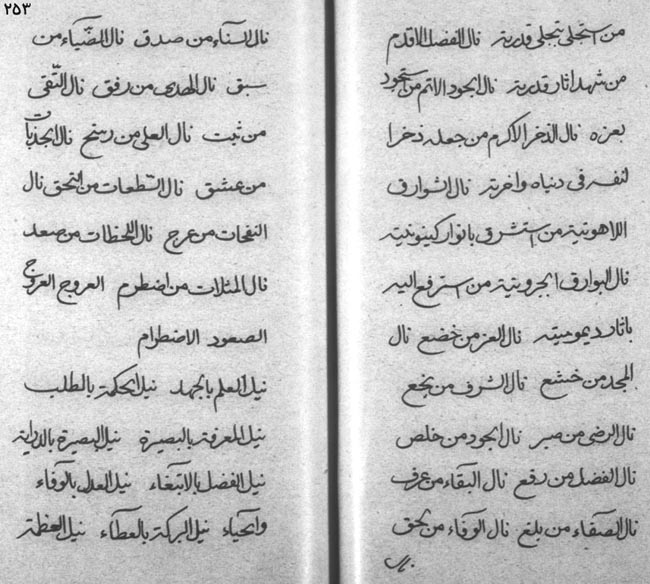 من استجلى بتجلى قدرته نال الفضل الاقدم
من شهد اثار قدرته نال الجود الاتم من استجود
بعزه نال الذخر الاكرم من جعله ذخرا
لنفسه فى دنياه و اخرته نال الشوارق
اللاهوتية من استشرق بانوار كينونيته
نال البوارق الجبروتية من استرفع اليه
باثار ديموميته نال العز من خضع نال
المجد من خشع نال الشرف من نجع
نال الرضى من صبر نال الجود من خلص
نال الفضل من رقع نال البقاء من عرف
نال الصفاء من بلغ نال الوفاء من بحق
نال
٢٥٣
نال السناء من صدق نال الضياء من
سبق نال الهدى من رفق نال التقى
من ثبت نال العلى من رسخ نال الجذبات
من عشق نال السطعات من التحق نال
النفحات من عرج نال اللحظات من صعد
نال المثلات من اضطرم العروج العروج
الصعود الاضطرام
نيل العلم بالجهد نيل الحكمة بالطلب
نيل المعرفة بالبصيرة نيل البصيرة بالدراية
نيل الفضل بالابتغاء نيل العدل بالوفاء
و الحياء نيل البركة بالعطاء نيل العظمة